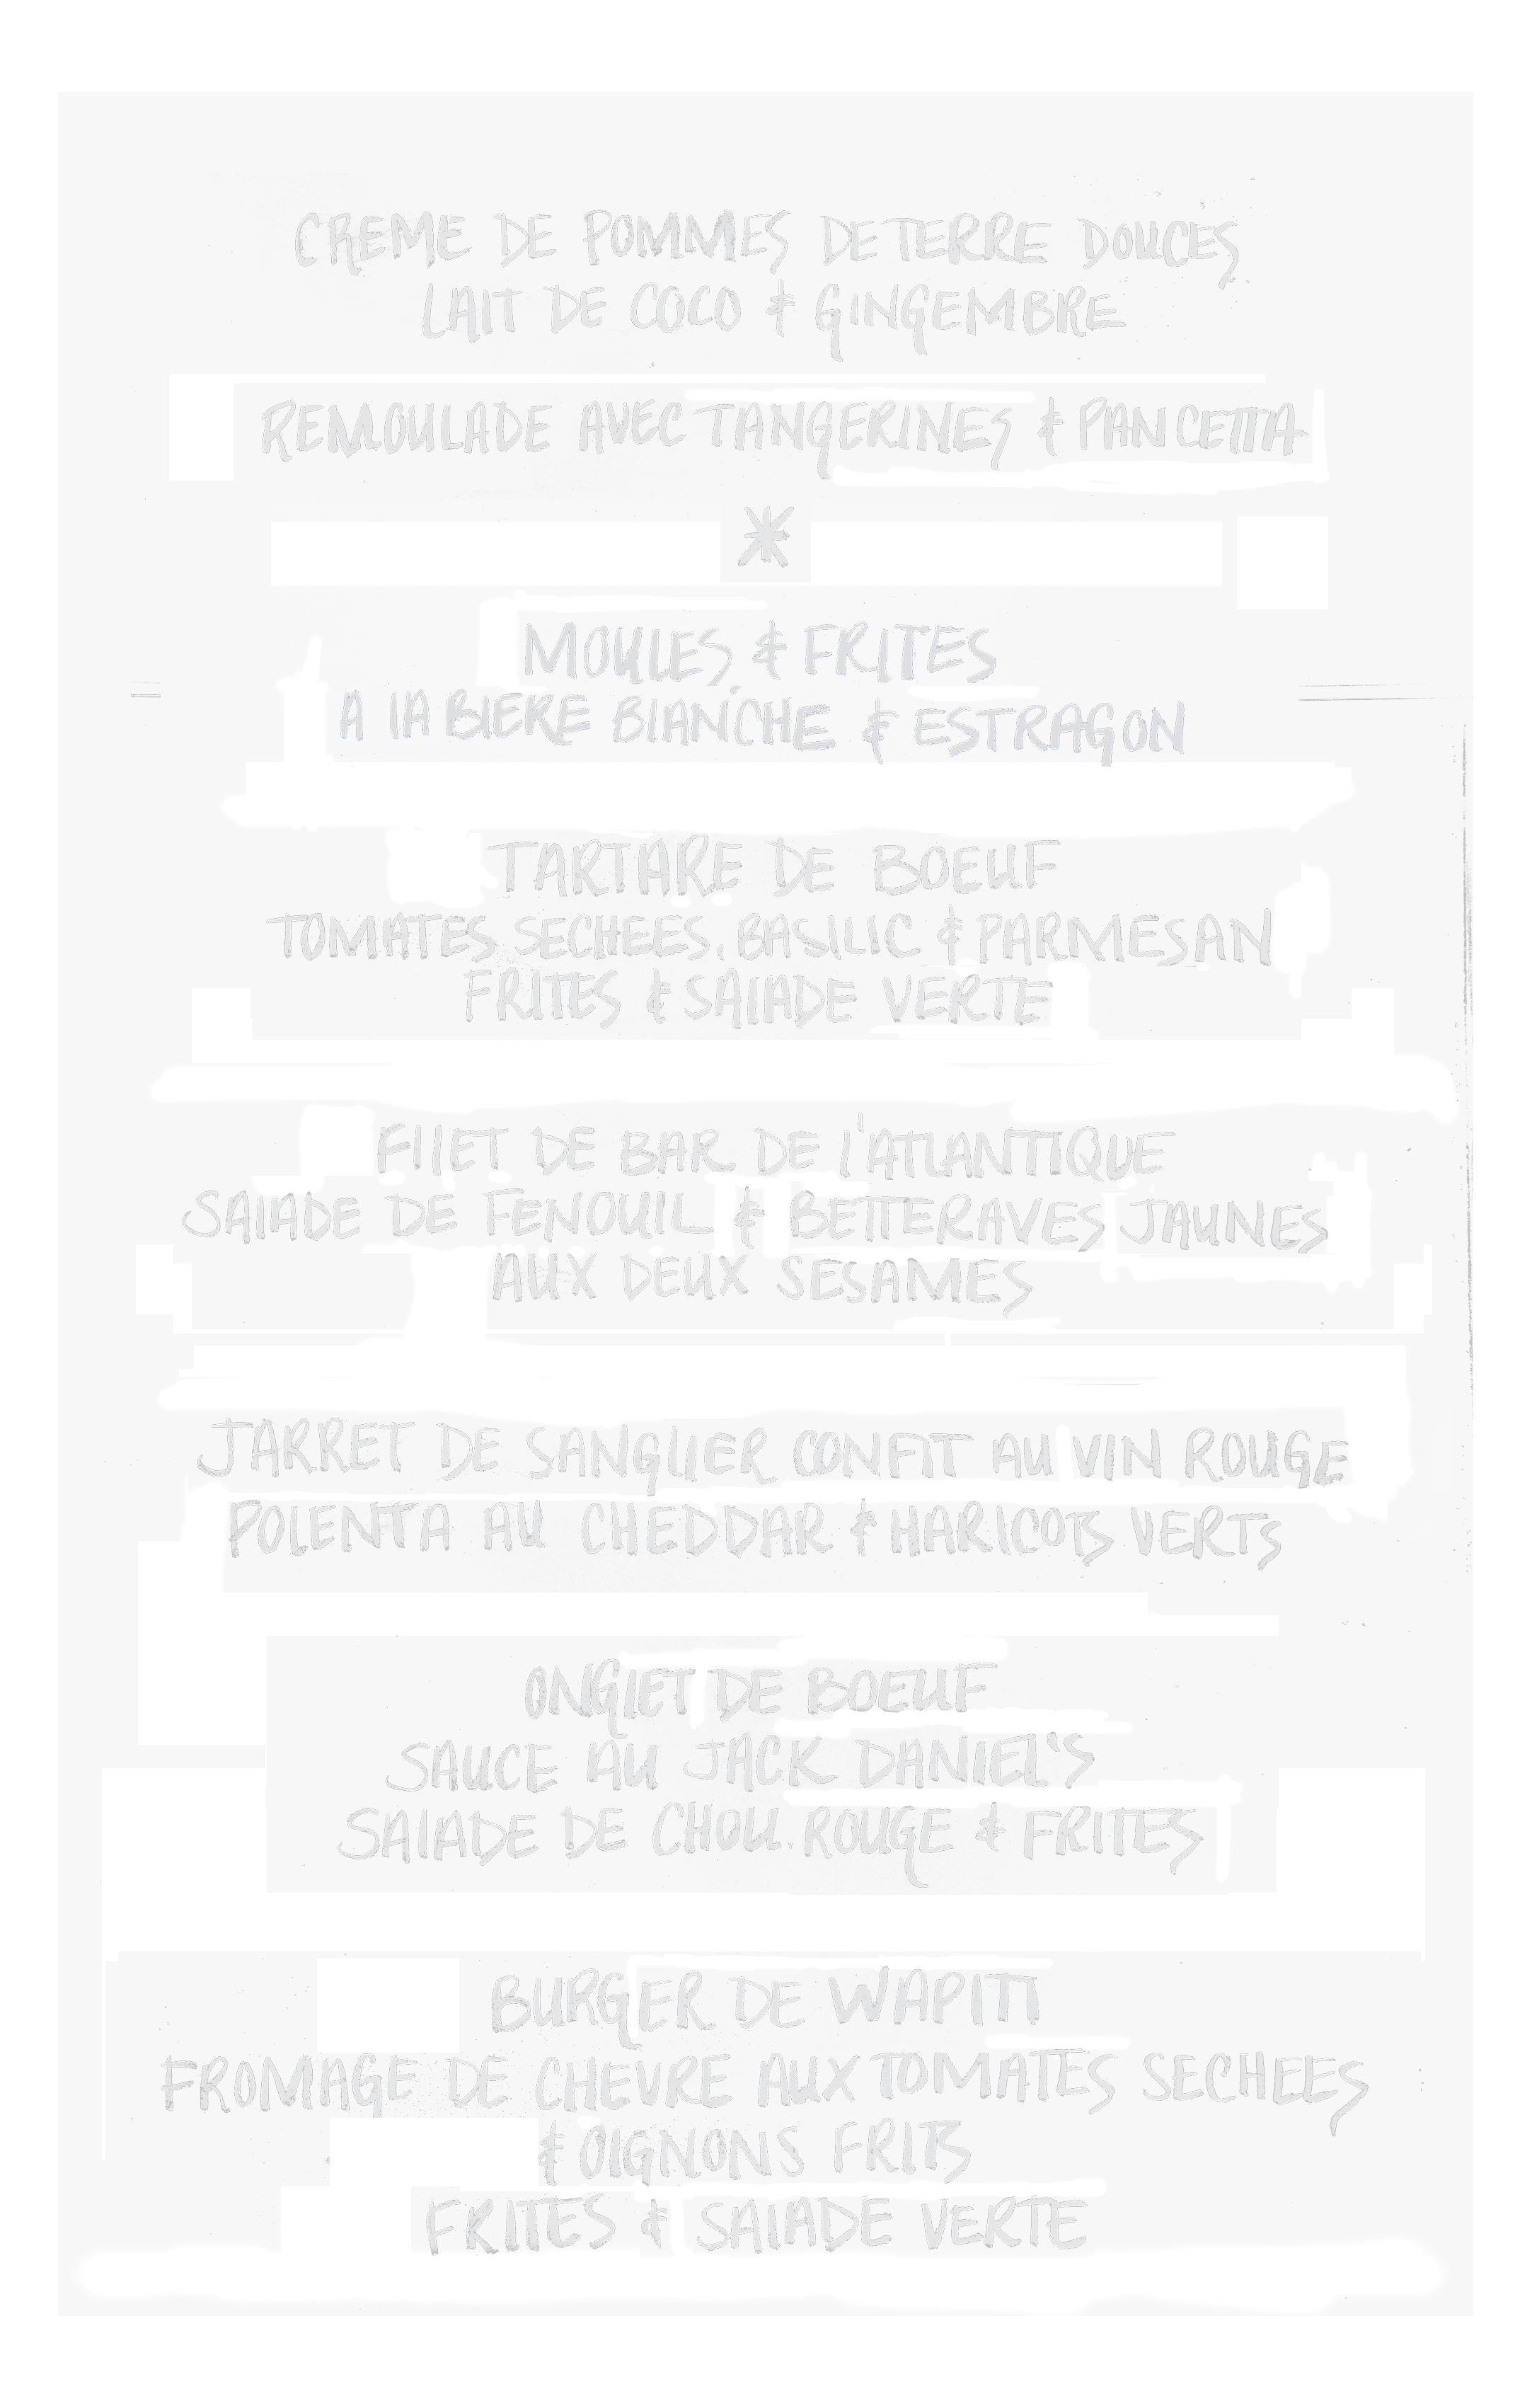 CREME DE POMMES DE TERRE DOUCES
LAIT DE COCO & GINGEMBRE
REMOULADE AVEC TANGERINES & PANCETTA
*
MOULES & FRITES
A LA BIERE BLANCHE & ESTRAGON
TARTARE DE BOEUF
TOMATES SECHEES, BASILIC & PARMESAN
FRITES & SALADE VERTE
FILET DE BAR DE L'ATLANTIQUE
SALADE DE FENOUIL & BETTERAVES JAUNES
AUX DEUX SESAMES
JARRET DE SANGLIER CONFIT AU VIN ROUGE
POLENTA AU CHEDDAR & HARICOTS VERTS
ONGLET DE BOEUF
SAUCE AU JACK DANIEL'S
SALADE DE CHOU ROUGE & FRITES
BURGER DE WAPITI
FROMAGE DE CHEVRE AUX TOMATES SECHEES
& OIGNONS FRITS
FRITES & SALADE VERTE